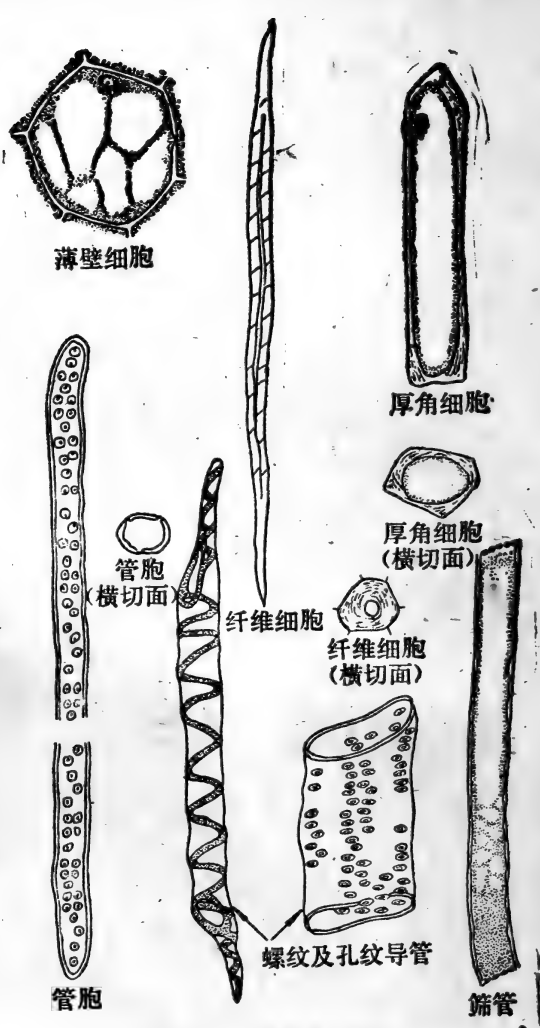 薄壁细胞
厚角细胞
厚角细胞
(横切面)
管胞
(横切面)
纤维细胞
纤维细胞
(横切面)
螺纹及孔纹导管
管胞
筛管